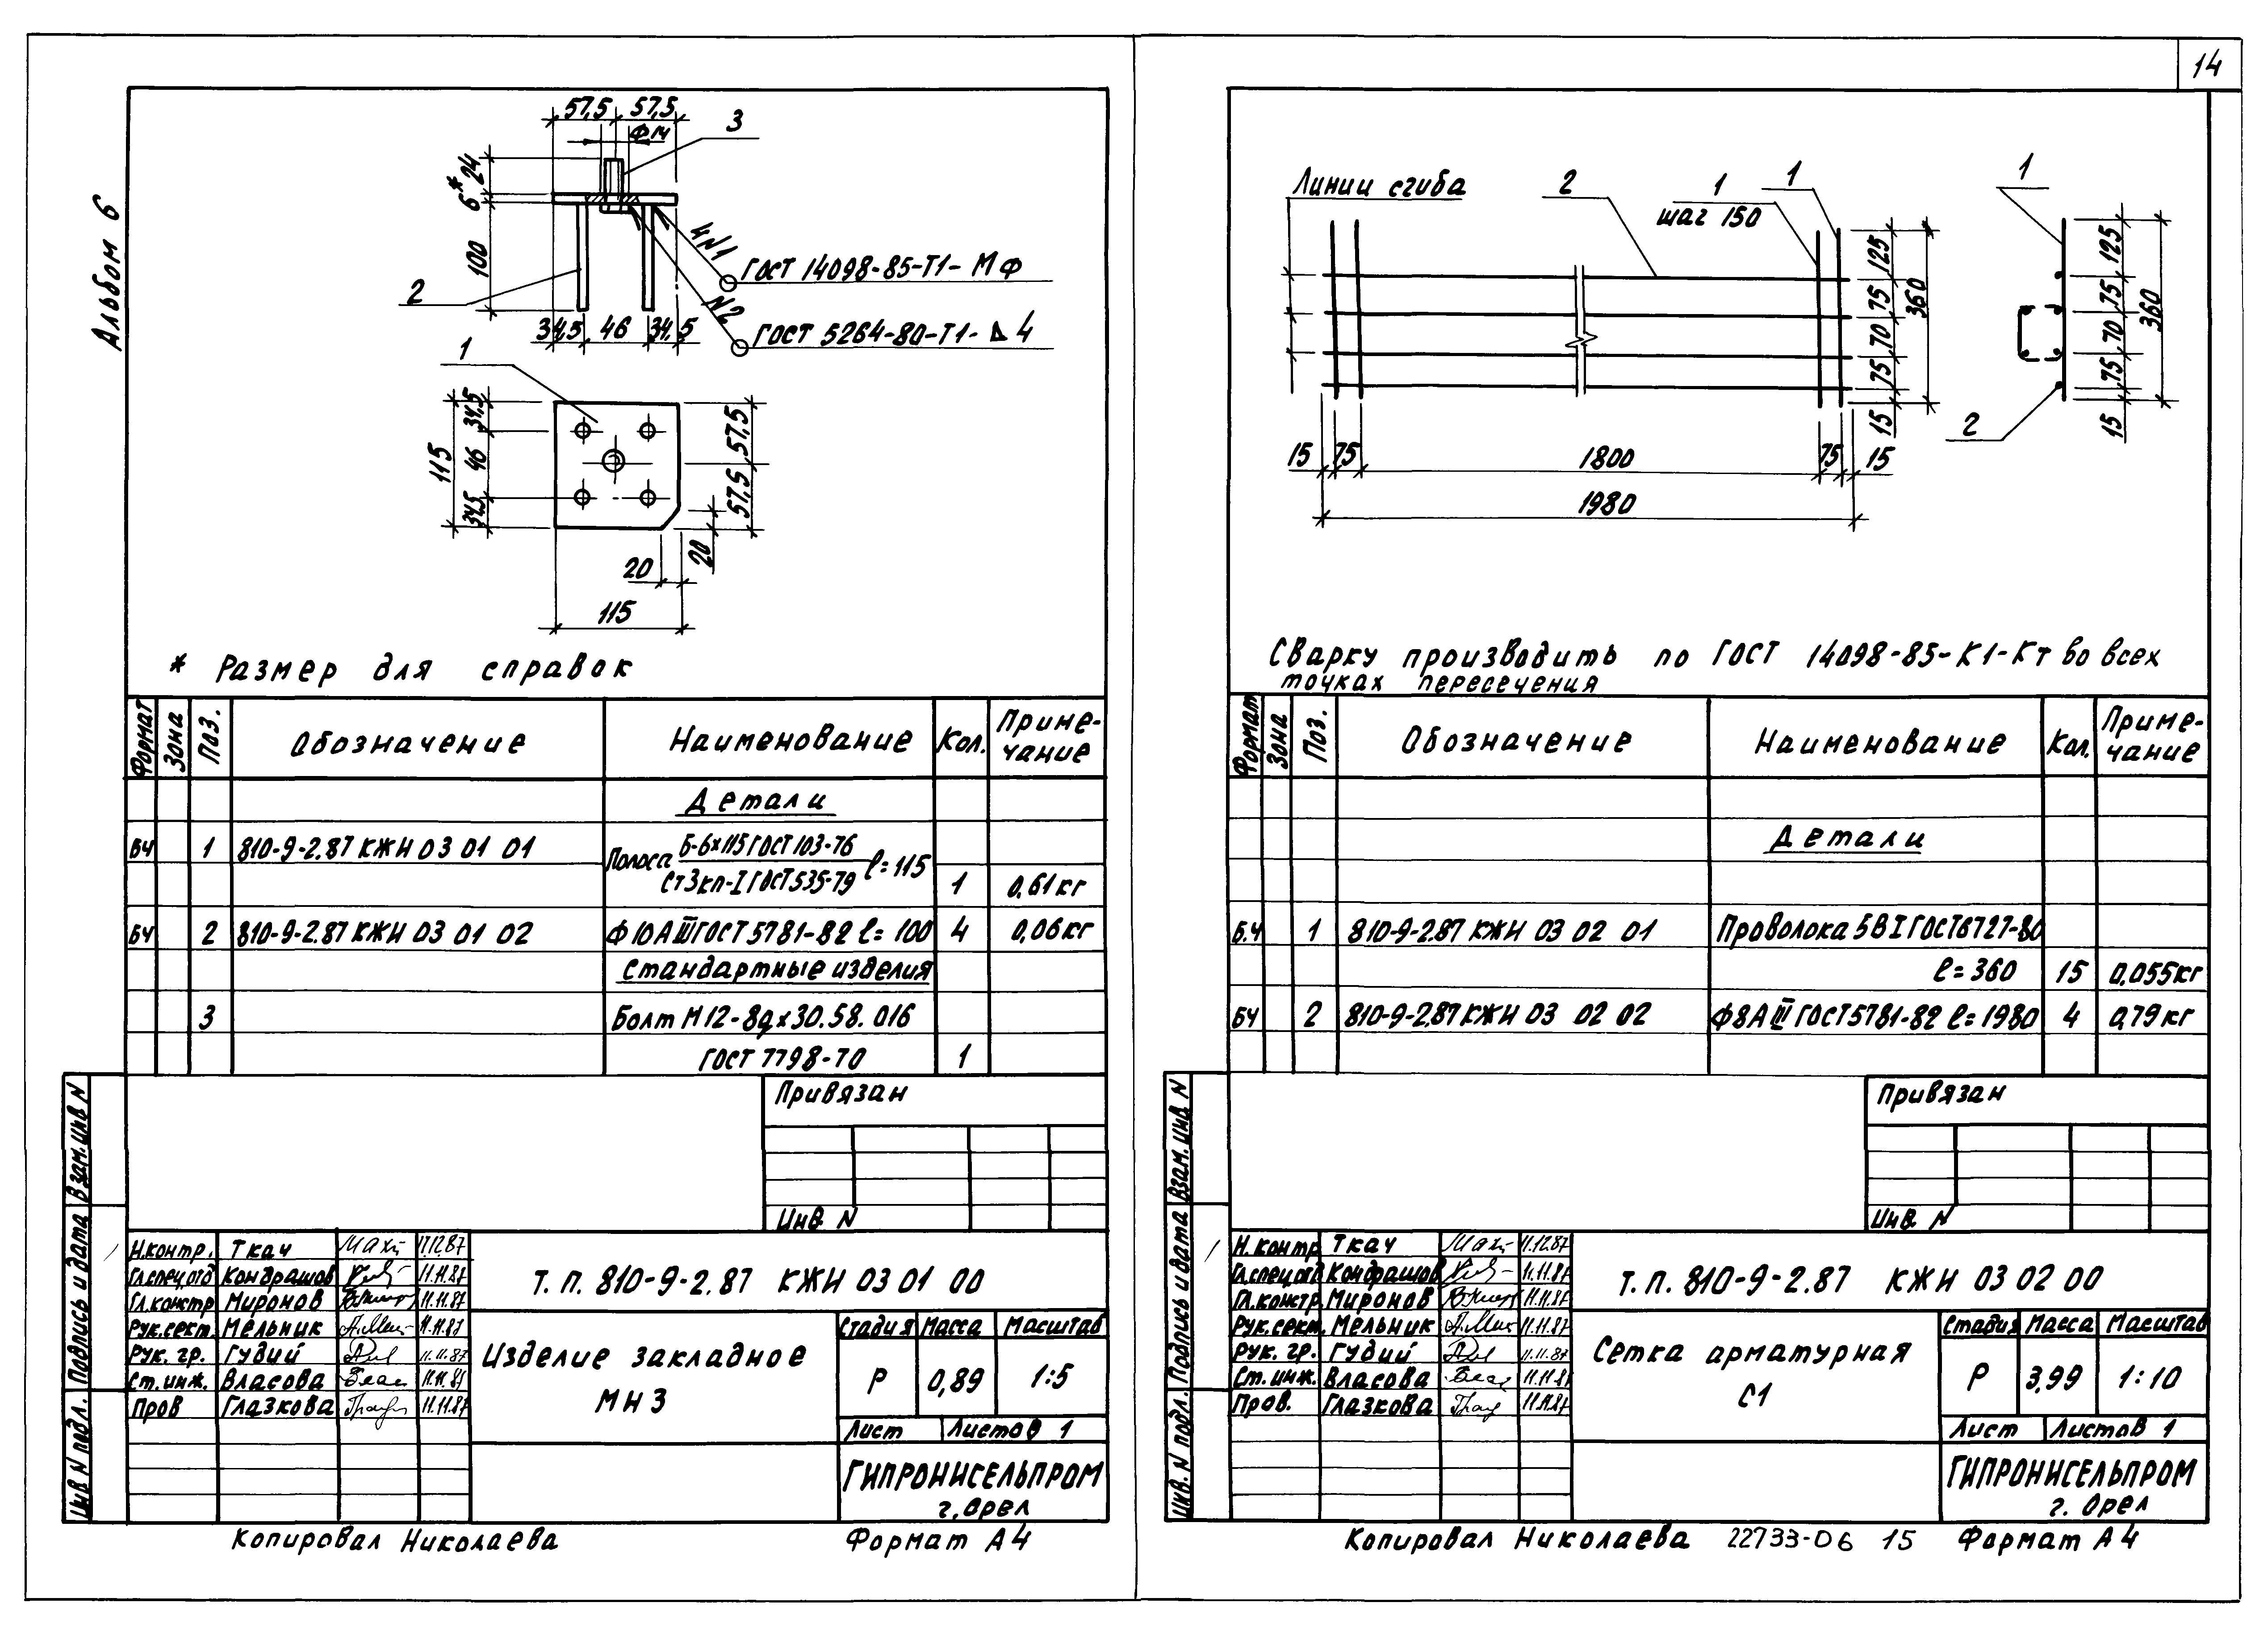 14
Альбом 6
57,5 57,5
Ф14
3
24
6*
100
2
4N1
ГОСТ 14098-85-Т1-МФ
N2
ГОСТ 5264-80-Т1-⊿4
34,5 46 34,5
1
115
34,5
46
34,5
57,5
57,5
20
20
115
* Размер для справок
Формат Зона Поз. Обозначение Наименование Кол. Приме-
чание
Детали
БЧ 1 810-9-2.87 КЖИ 03 01 01 Полоса Б-6х115 ГОСТ 103-76 ℓ=115
Ст3кп-I ГОСТ 535-79 1 0,61кг
БЧ 2 810-9-2.87 КЖИ 03 01 02 Ф10АIII ГОСТ 5781-82 ℓ=100 4 0,06кг
Стандартные изделия
3 Болт М12-8gх30.58.016
ГОСТ 7798-70 1
Привязан
Инв N
Взам. инв N
Подпись и дата
Инв N подл.
Н.контр. Ткач 11.12.87
Гл.спец.отд Кондрашов 11.11.87
Гл.констр Миронов 11.11.87
Рук.сект. Мельник 11.11.87
Рук. гр. Гудий 11.11.87
Ст. инж. Власова 11.11.87
Пров Глазкова 11.11.87
Т. П. 810-9-2.87 КЖИ 03 01 00
Изделие закладное
МН3
Стадия Масса Масштаб
Р 0,89 1:5
Лист Листов 1
ГИПРОНИСЕЛЬПРОМ
г. Орел
Копировал Николаева Формат А4
Линии сгиба
2
1
шаг 150
1
125
75
70
75
15
360
15 75 1800 75 15
1980
1
125
75
70
75
15
360
2
Сварку производить по ГОСТ 14098-85-К1-Кт во всех
точках пересечения
Формат Зона Поз. Обозначение Наименование Кол. Приме-
чание
Детали
Б.Ч 1 810-9-2.87 КЖИ 03 02 01 Проволока 5ВI ГОСТ 6727-80
ℓ=360 15 0,055кг
БЧ 2 810-9-2.87 КЖИ 03 02 02 Ф8АIII ГОСТ 5781-82 ℓ=1980 4 0,79кг
Привязан
Инв. N
Взам. инв. N
Подпись и дата
Инв. N подл.
Н. контр Ткач 11.12.87
Гл.спец.отд Кондрашов 11.11.87
Гл.констр. Миронов 11.11.87
Рук.сект. Мельник 11.11.87
Рук. гр. Гудий 11.11.87
Ст. инж. Власова 11.11.87
Пров. Глазкова 11.11.87
Т. П. 810-9-2.87 КЖИ 03 02 00
Сетка арматурная
С1
Стадия Масса Масштаб
Р 3,99 1:10
Лист Листов 1
ГИПРОНИСЕЛЬПРОМ
г. Орел
Копировал Николаева 22733-06 15 Формат А4